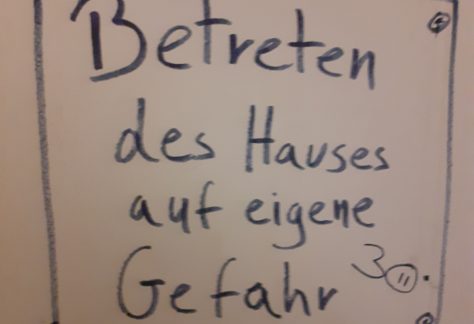 Betreten
des Hauses
auf eigene
Gefahr